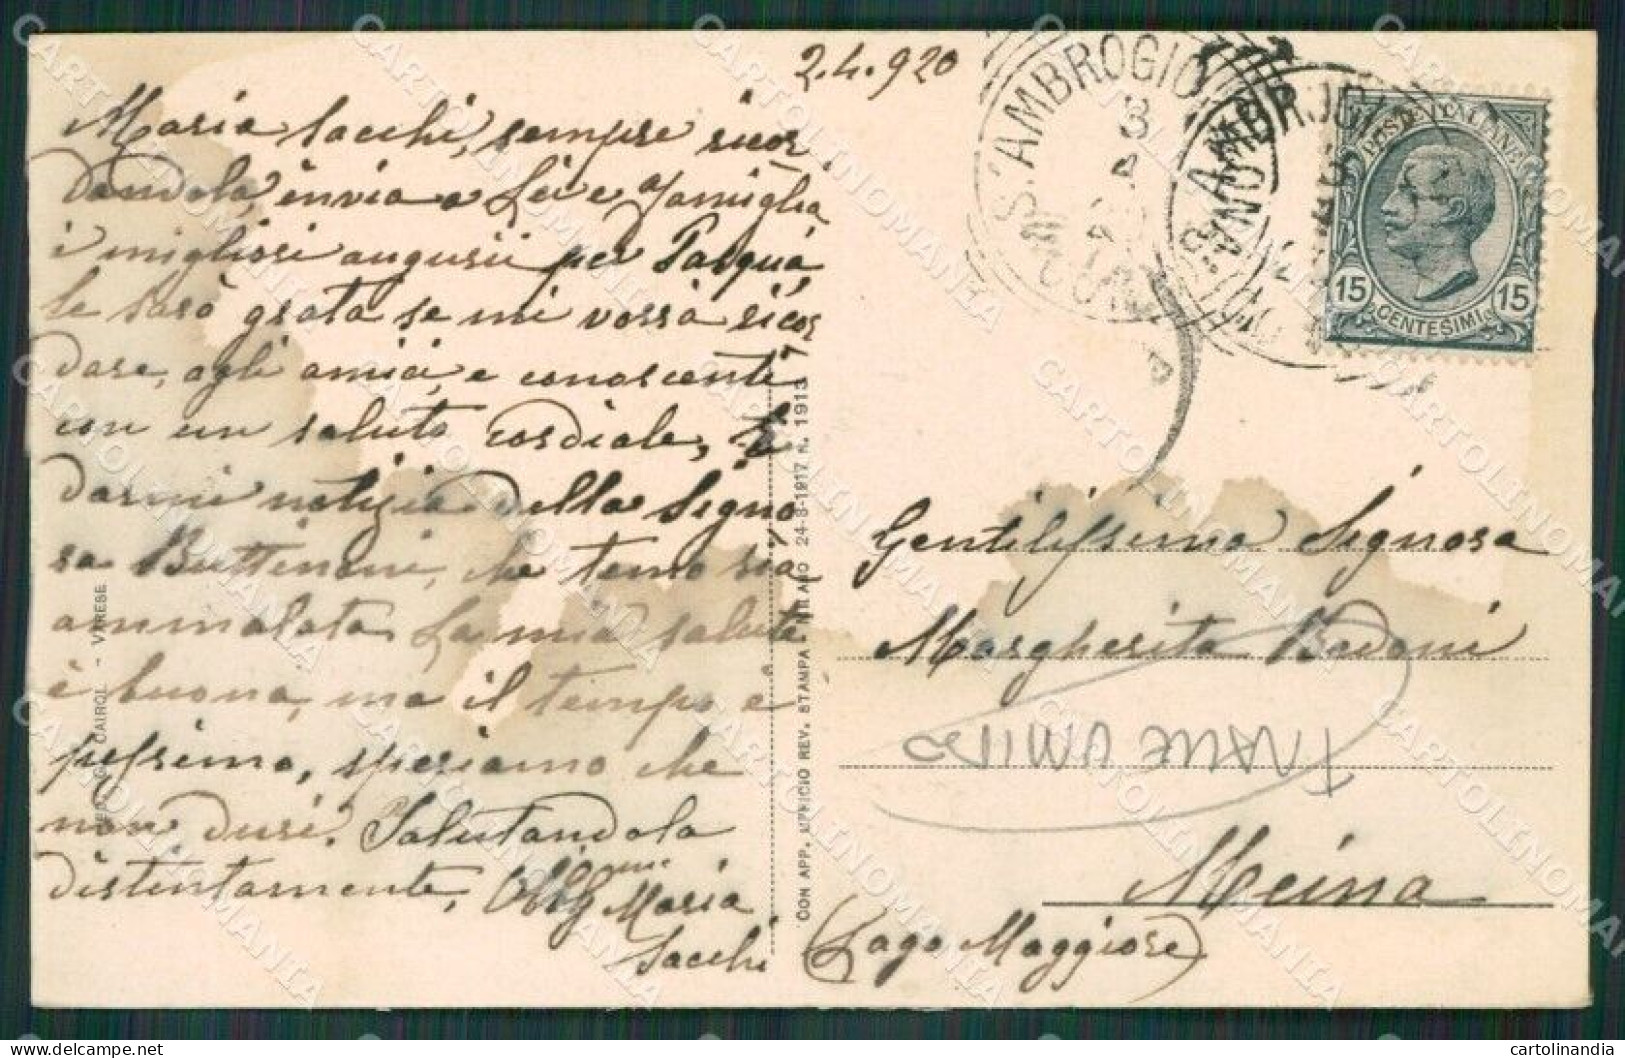 2.4.920
Maria Sacchi, sempre ricor
dandola, invia a Lei e Famiglia
i migliori auguri per Pasqua,
le sarò grata se mi vorrà ricor
dare, agli amici, e conoscenti
con un saluto cordiale, e
darmi notizia della Signo
ra Buttinoni, che temo sia
ammalata. La mia salute
è buona, ma il tempo è
pessimo, speriamo che
non duri. Salutandola
distintamente, Obbligma
Maria
Sacchi
S. AMBROGIO
POSTE ITALIANE
15 CENTESIMI 15
Gentilissima Signora
Margherita Badoni
Meina
(Lago Maggiore)
TRACCE UMIDO
CAIROLI - VARESE
CON APP. UFFICIO REV. STAMPA - MILANO 24-8-1917 N. 1913
CARTOLINOMANIA
cartolinandia